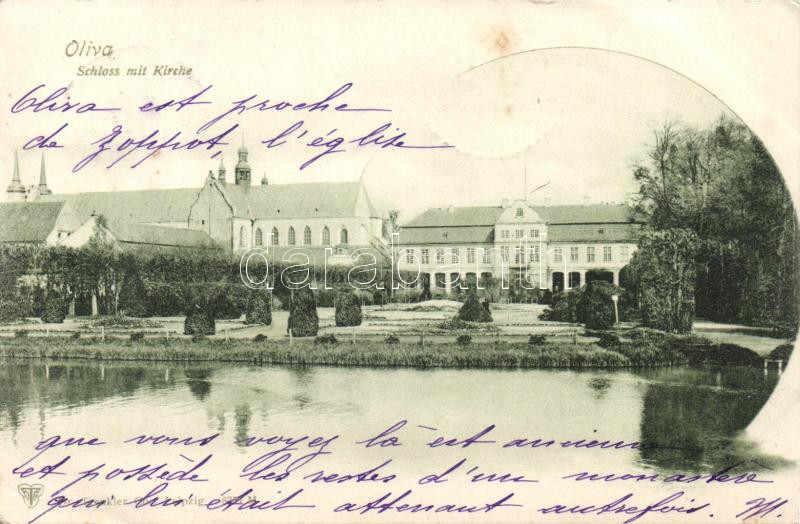 Oliva
Schloss mit Kirche
Oliva est proche
de Zoppot, l'église
darabanth.com
que vous voyez là est ancienne
et possède les restes d'un monastère
qui lui était attenant autrefois. M.
Leipzig